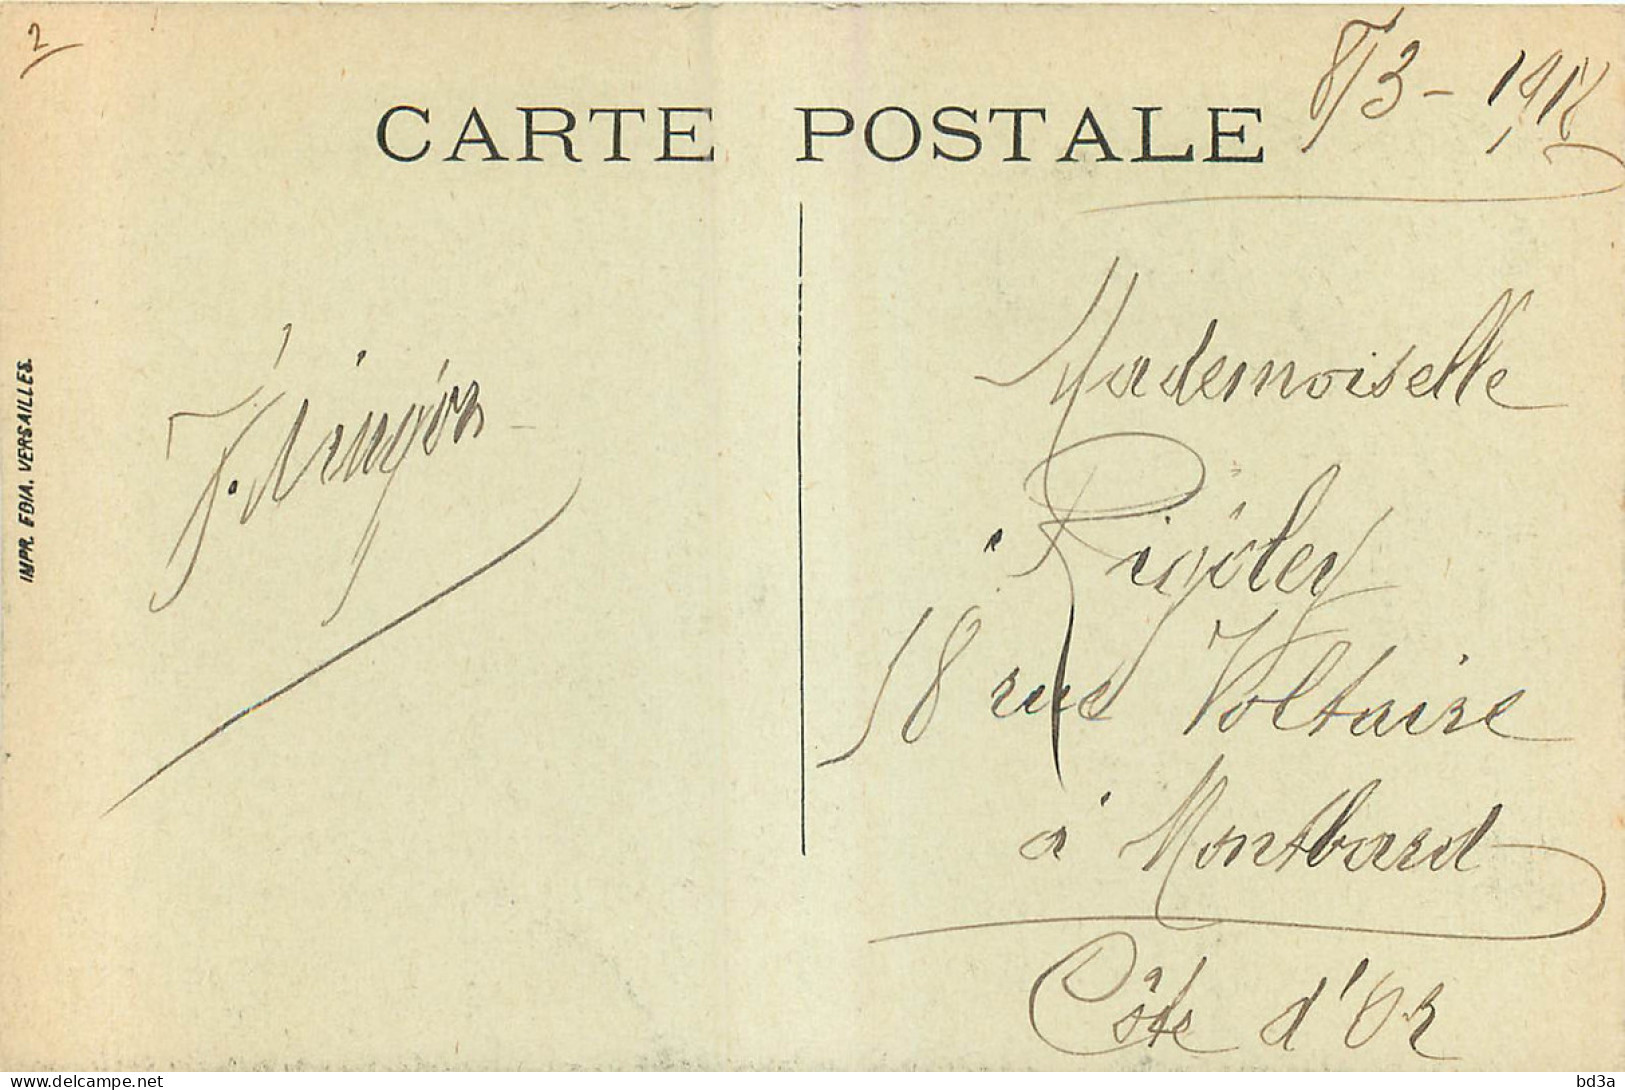 2
CARTE POSTALE
8/3 - 1918
IMPR. EDIA. VERSAILLES.
Mademoiselle
Rigoley
18 rue Voltaire
à Montbard
Côte d'Or
delcampe.net
bd3a